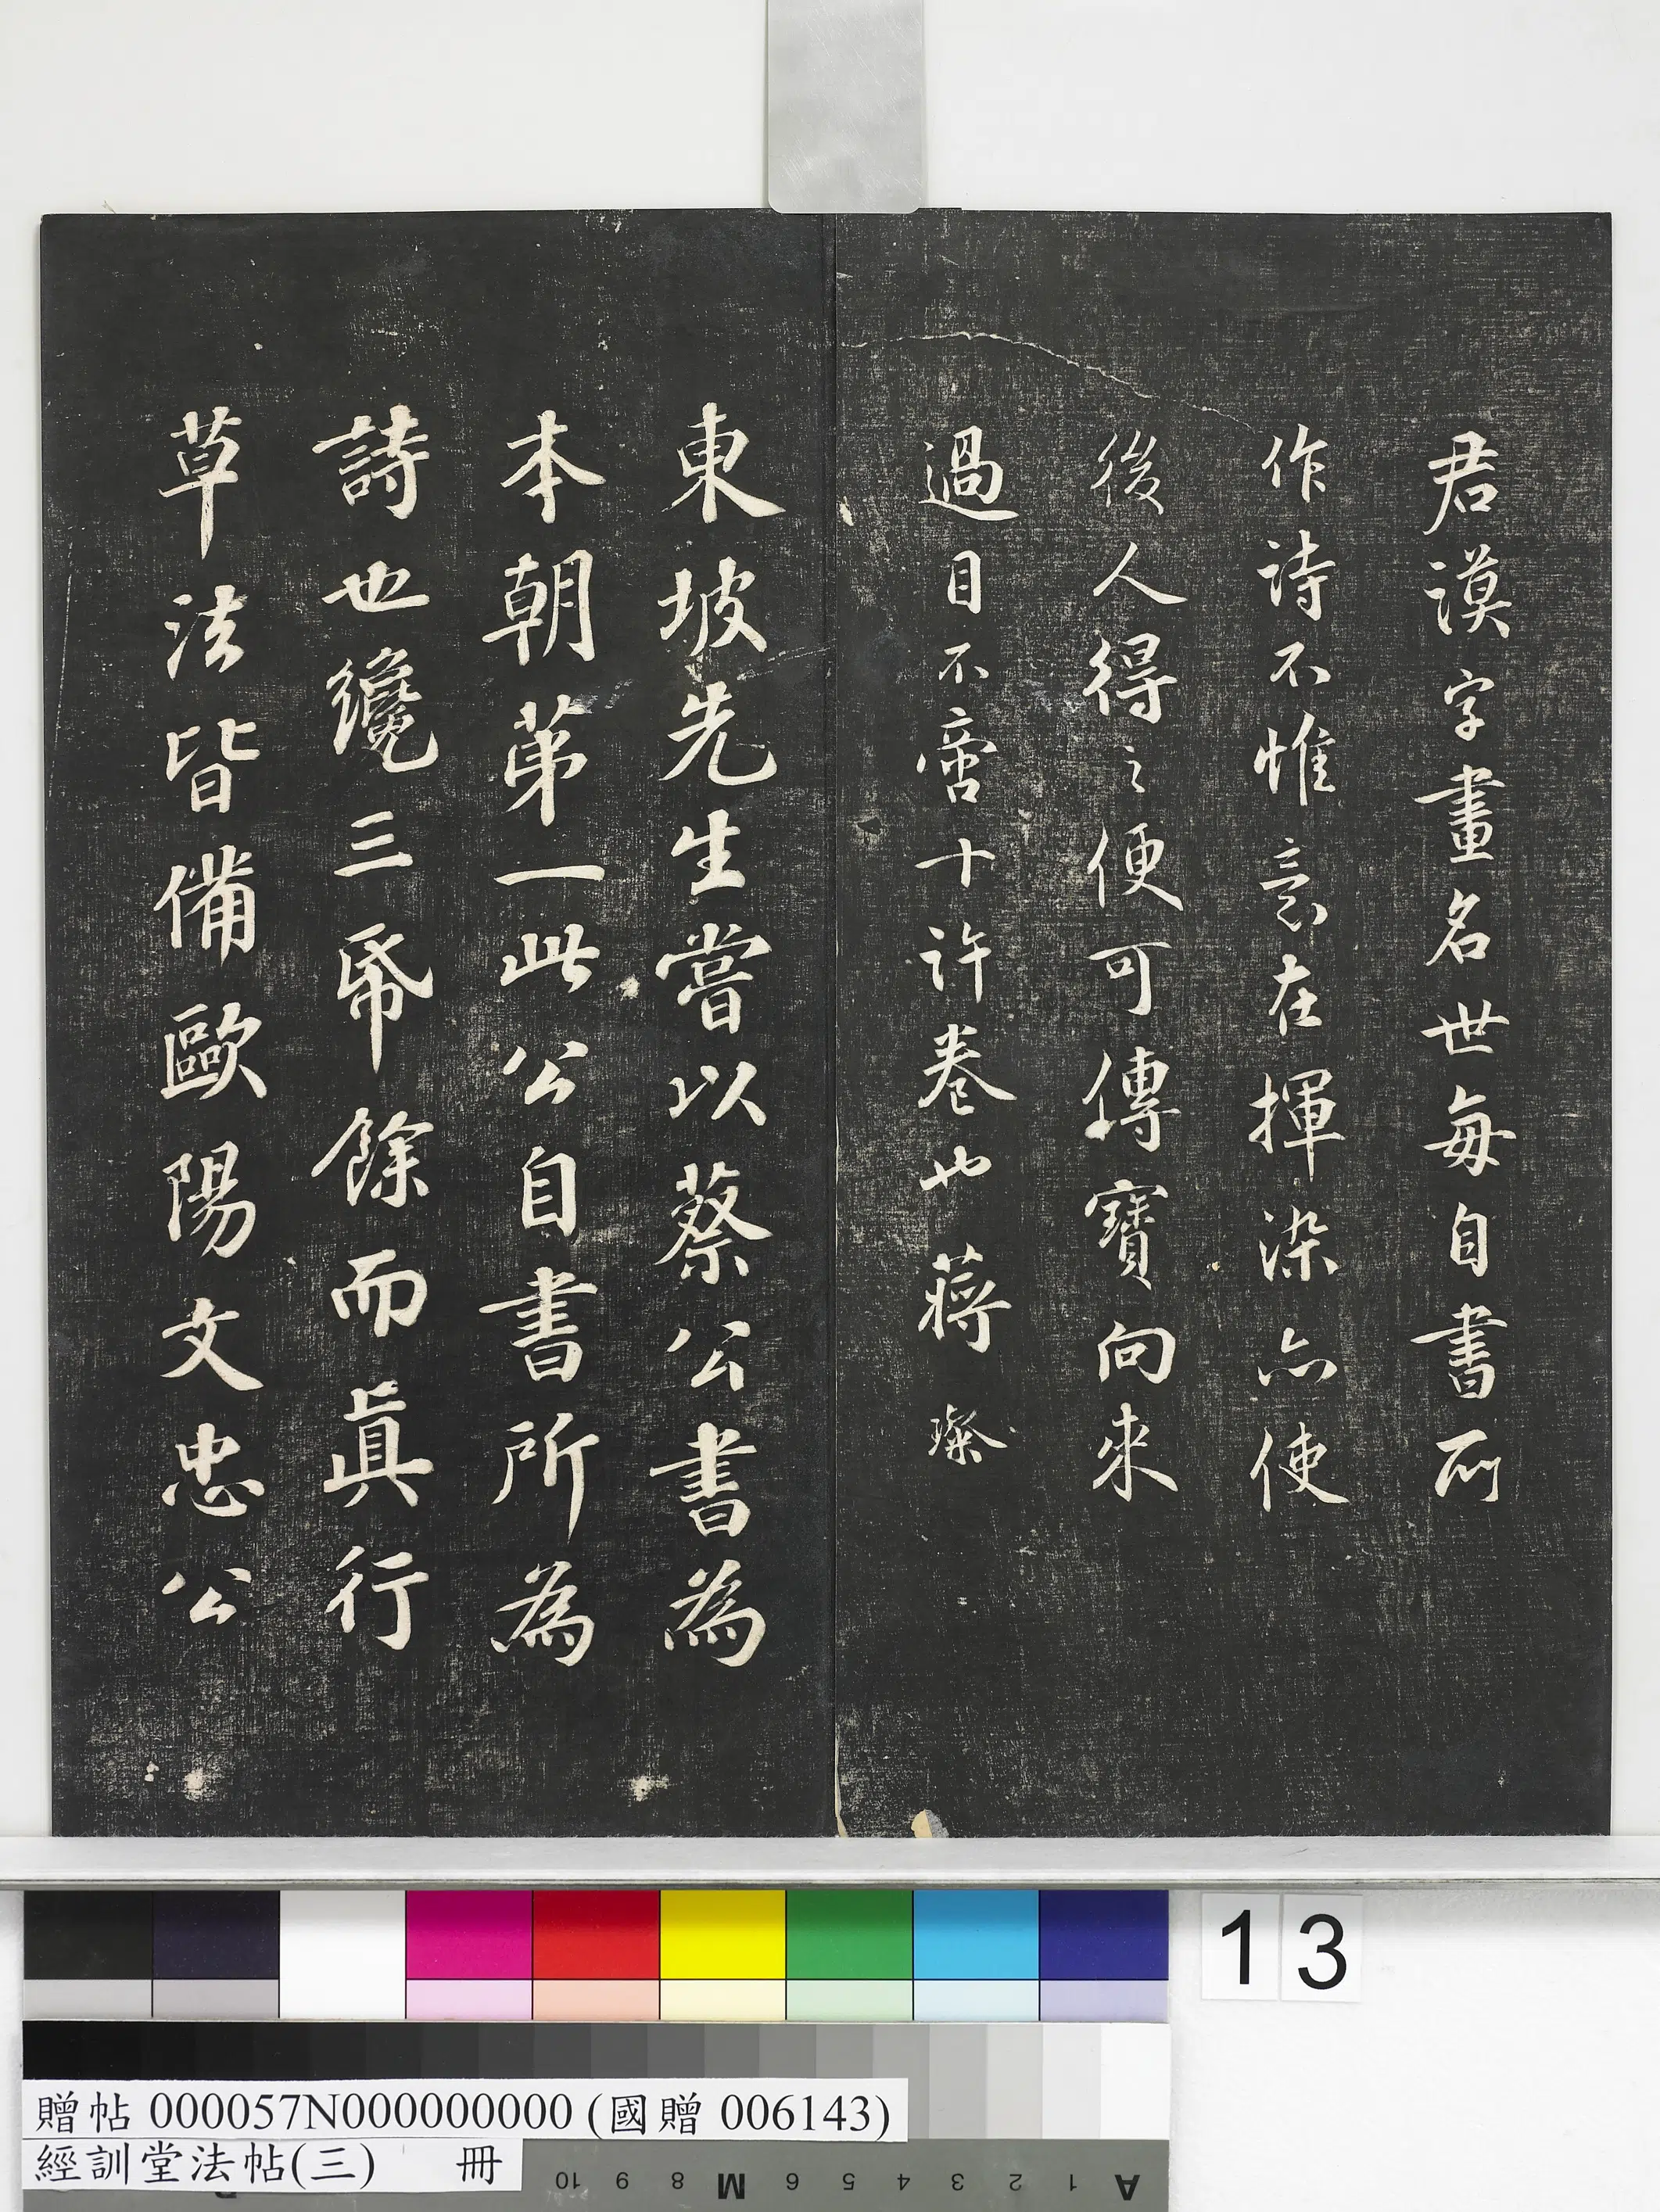 君謨字畫名世每自書所
作詩不惟意在揮染亦使
後人得之便可傳寶向來
過目不啻十許卷也蔣璨
東坡先生嘗以蔡公書為
本朝第一此公自書所為
詩也纔三帋餘而真行
草法皆備歐陽文忠公
13
贈帖 000057N000000000 (國贈 006143)
經訓堂法帖(三) 冊
10 9 8 M 6 5 4 3 2 1 A